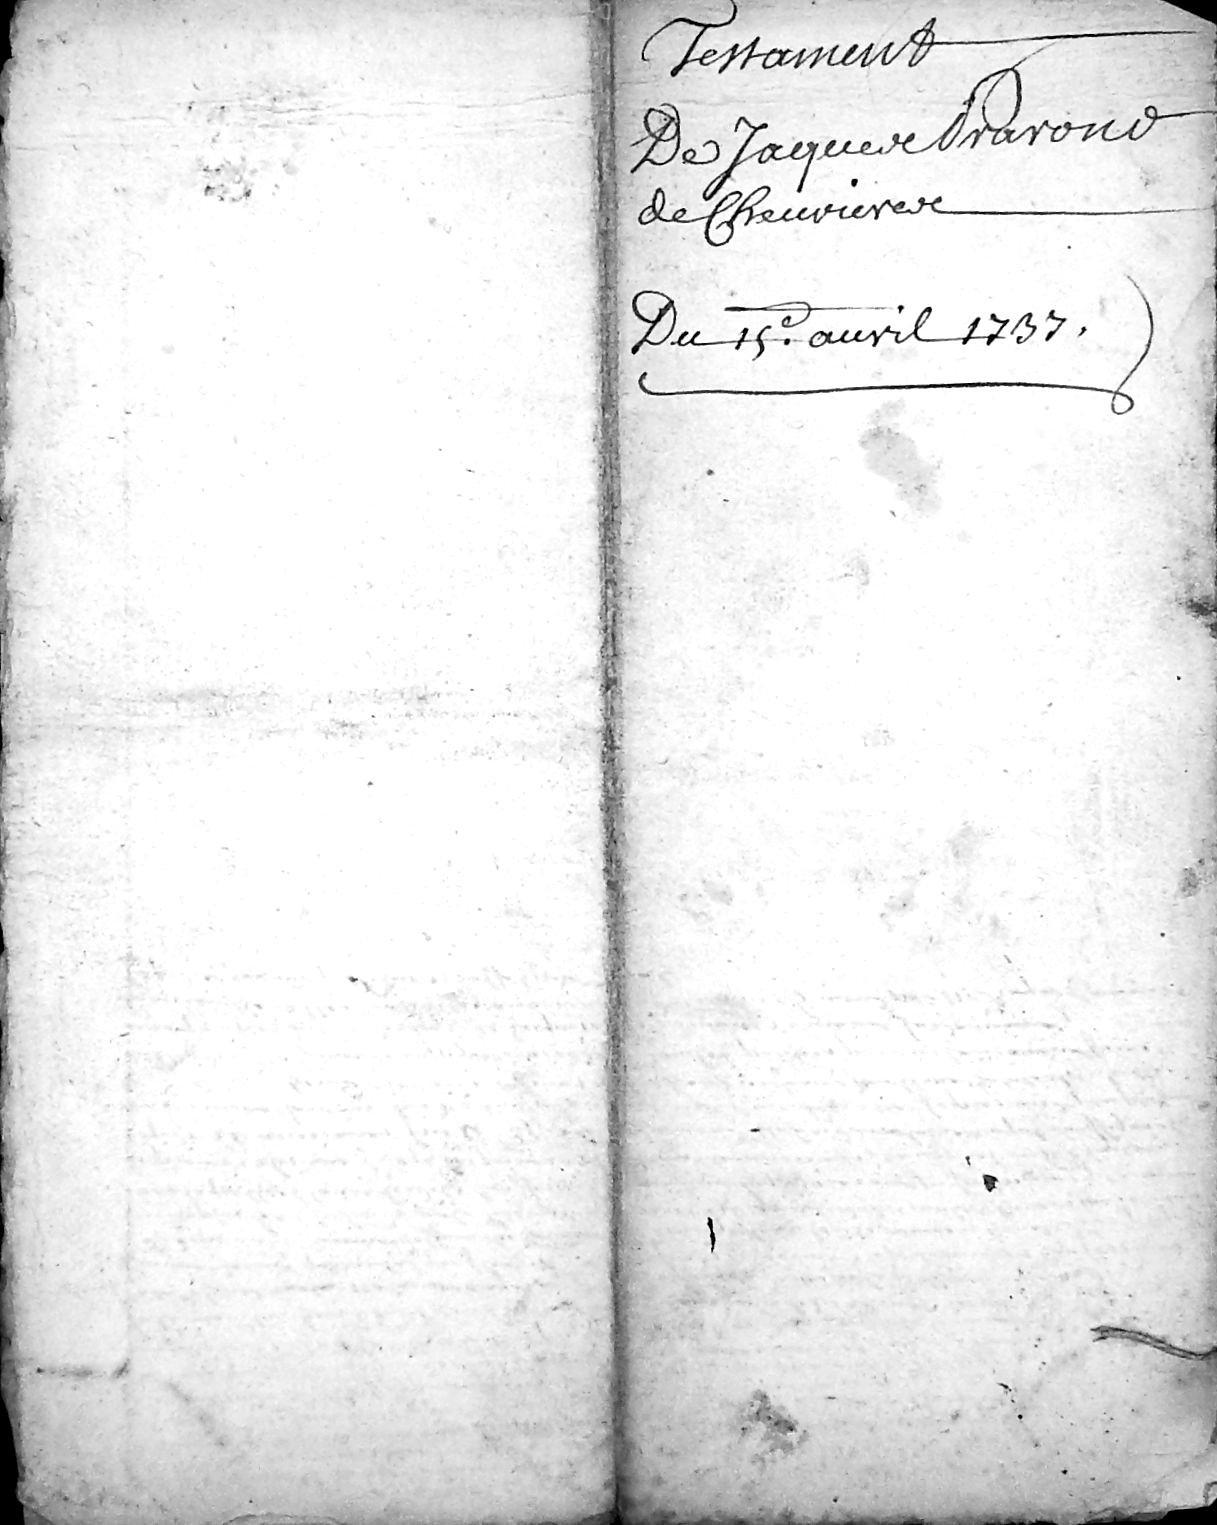 Testament
De Jaques Pravond
de Cheuvieres
Du 15e. auvril 1737.